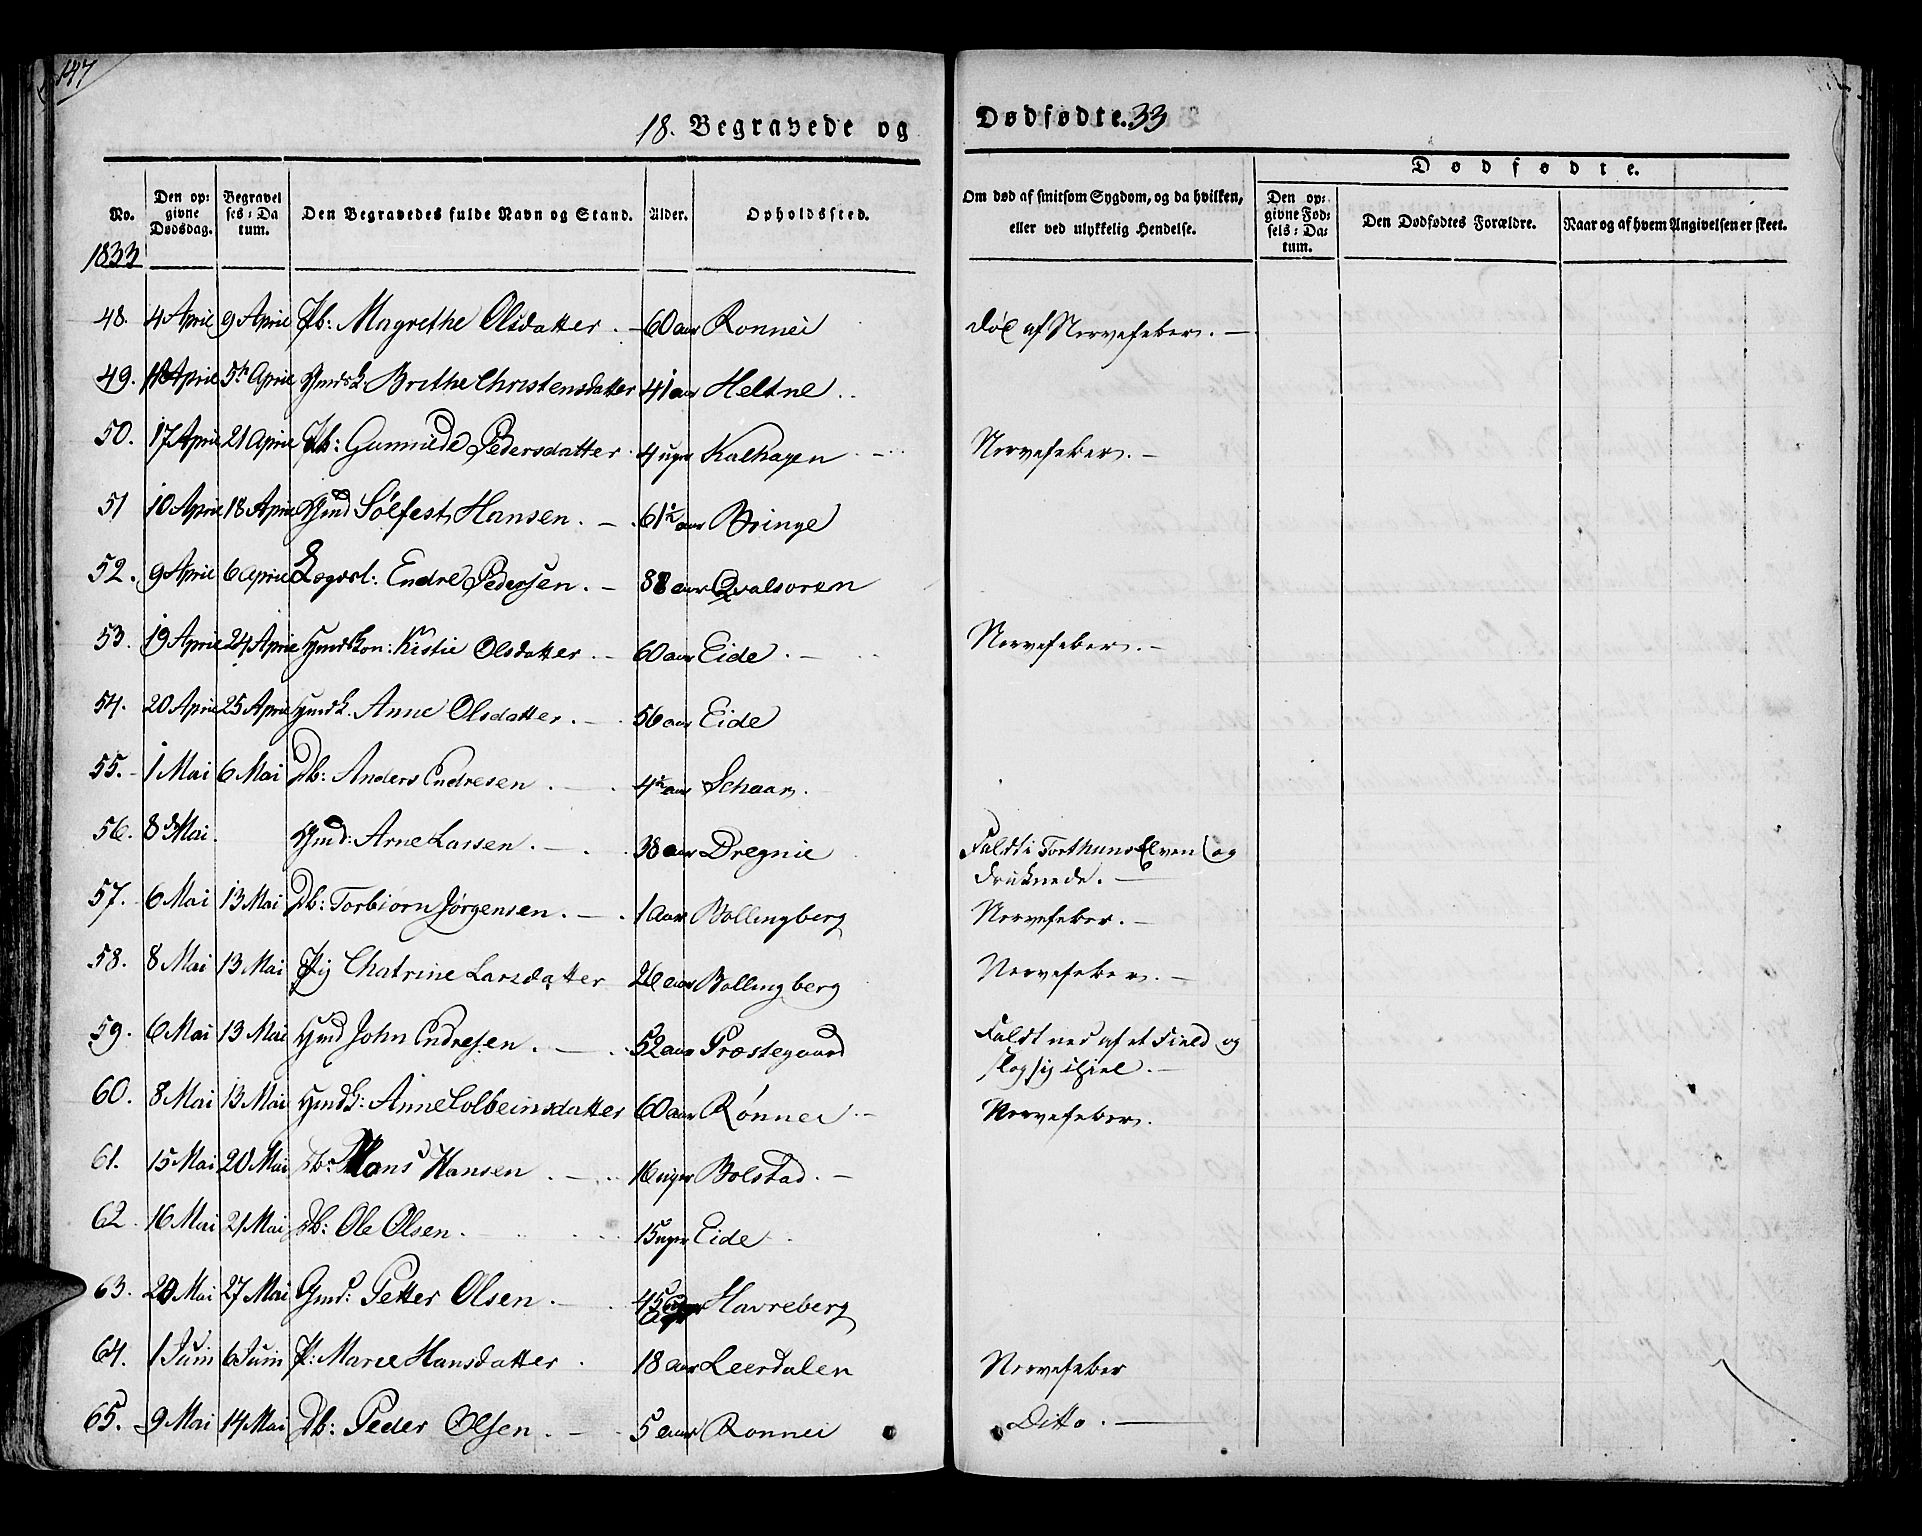 147
18. Begravede og Dødfødte. 33
Dødfødte.
No. Den opgivne Dødsdag. Begravelses-Datum. Den Begravedes fulde Navn og Stand. Alder. Opholdssted. Om død af smitsom Sygdom, og da hvilken, eller ved ulykkelig Hendelse. Den opgivne Fødsels-Datum. Den Dødfødtes Forældre. Naar og af hvem Angivelsen er skeet.
1833
48. 4 April 9 April Pb: Magrethe Olsdatter. 60 aar Ronnei død af Nervefeber.
49. April 5te April Hmdsk Brithe Christensdatter 41 aar Heltne
50. 17 April 21 April Pb: Gunnilde Pedersdatter 4 uger Kalhagen Nervefeber.
51 10 April 18 April Hmd Sølfest Hansen. 61½ aar Bringe
52. 9 April 6 April Lægdsl: Endre Pedersen. 88 aar Qvalsoren
53. 19 April 24 April Hmdskon: Kistie Olsdatter. 60 aar Eide. Nervefeber.
54. 20 April 25 April Hmdk. Anne Olsdatter. 56 aar Eide
55. 1 Mai 6 Mai Db: Anders Endresen. 4½ aar Schaar.
56. 8de Mai. Hmd: Arne Larsen. 38 aar Dregnie Faldt i Forthuns Elven og
druknede.
57. 6 Mai 13 Mai Db: Torbiorn Jørgensen. 1 Aar Bollingberg Nervefeber.
58. 8 Mai 13 Mai Pig Chatrine Larsdatter 26 aar Bollingberg Nervefeber.
59. 6 Mai 13 Mai Hmd John Endresen. 52 aar Præstegaard Faldt ned af et Field og
slog sig ihiel.
60. 8 Mai 13 Mai Hmdk: Anne Colbeinsdatter 60 aar Rønnei Nervefeber.
61. 15 Mai 20 Mai Db: Mons Hansen 16 uger Bolstad.
62 16 Mai 21 Mai Db: Ole Olsen. 15 uger Eide
63. 20 Mai 27 Mai Gmd: Petter Olsen. 45 Havreberg
64. 1 Juni 6 Juni P: Marie Hansdatter. 18 aar Leerdalen Nervefeber
65. 9 Mai 14 Mai Db: Peder Olsen. 5 aar Ronnei Ditto.